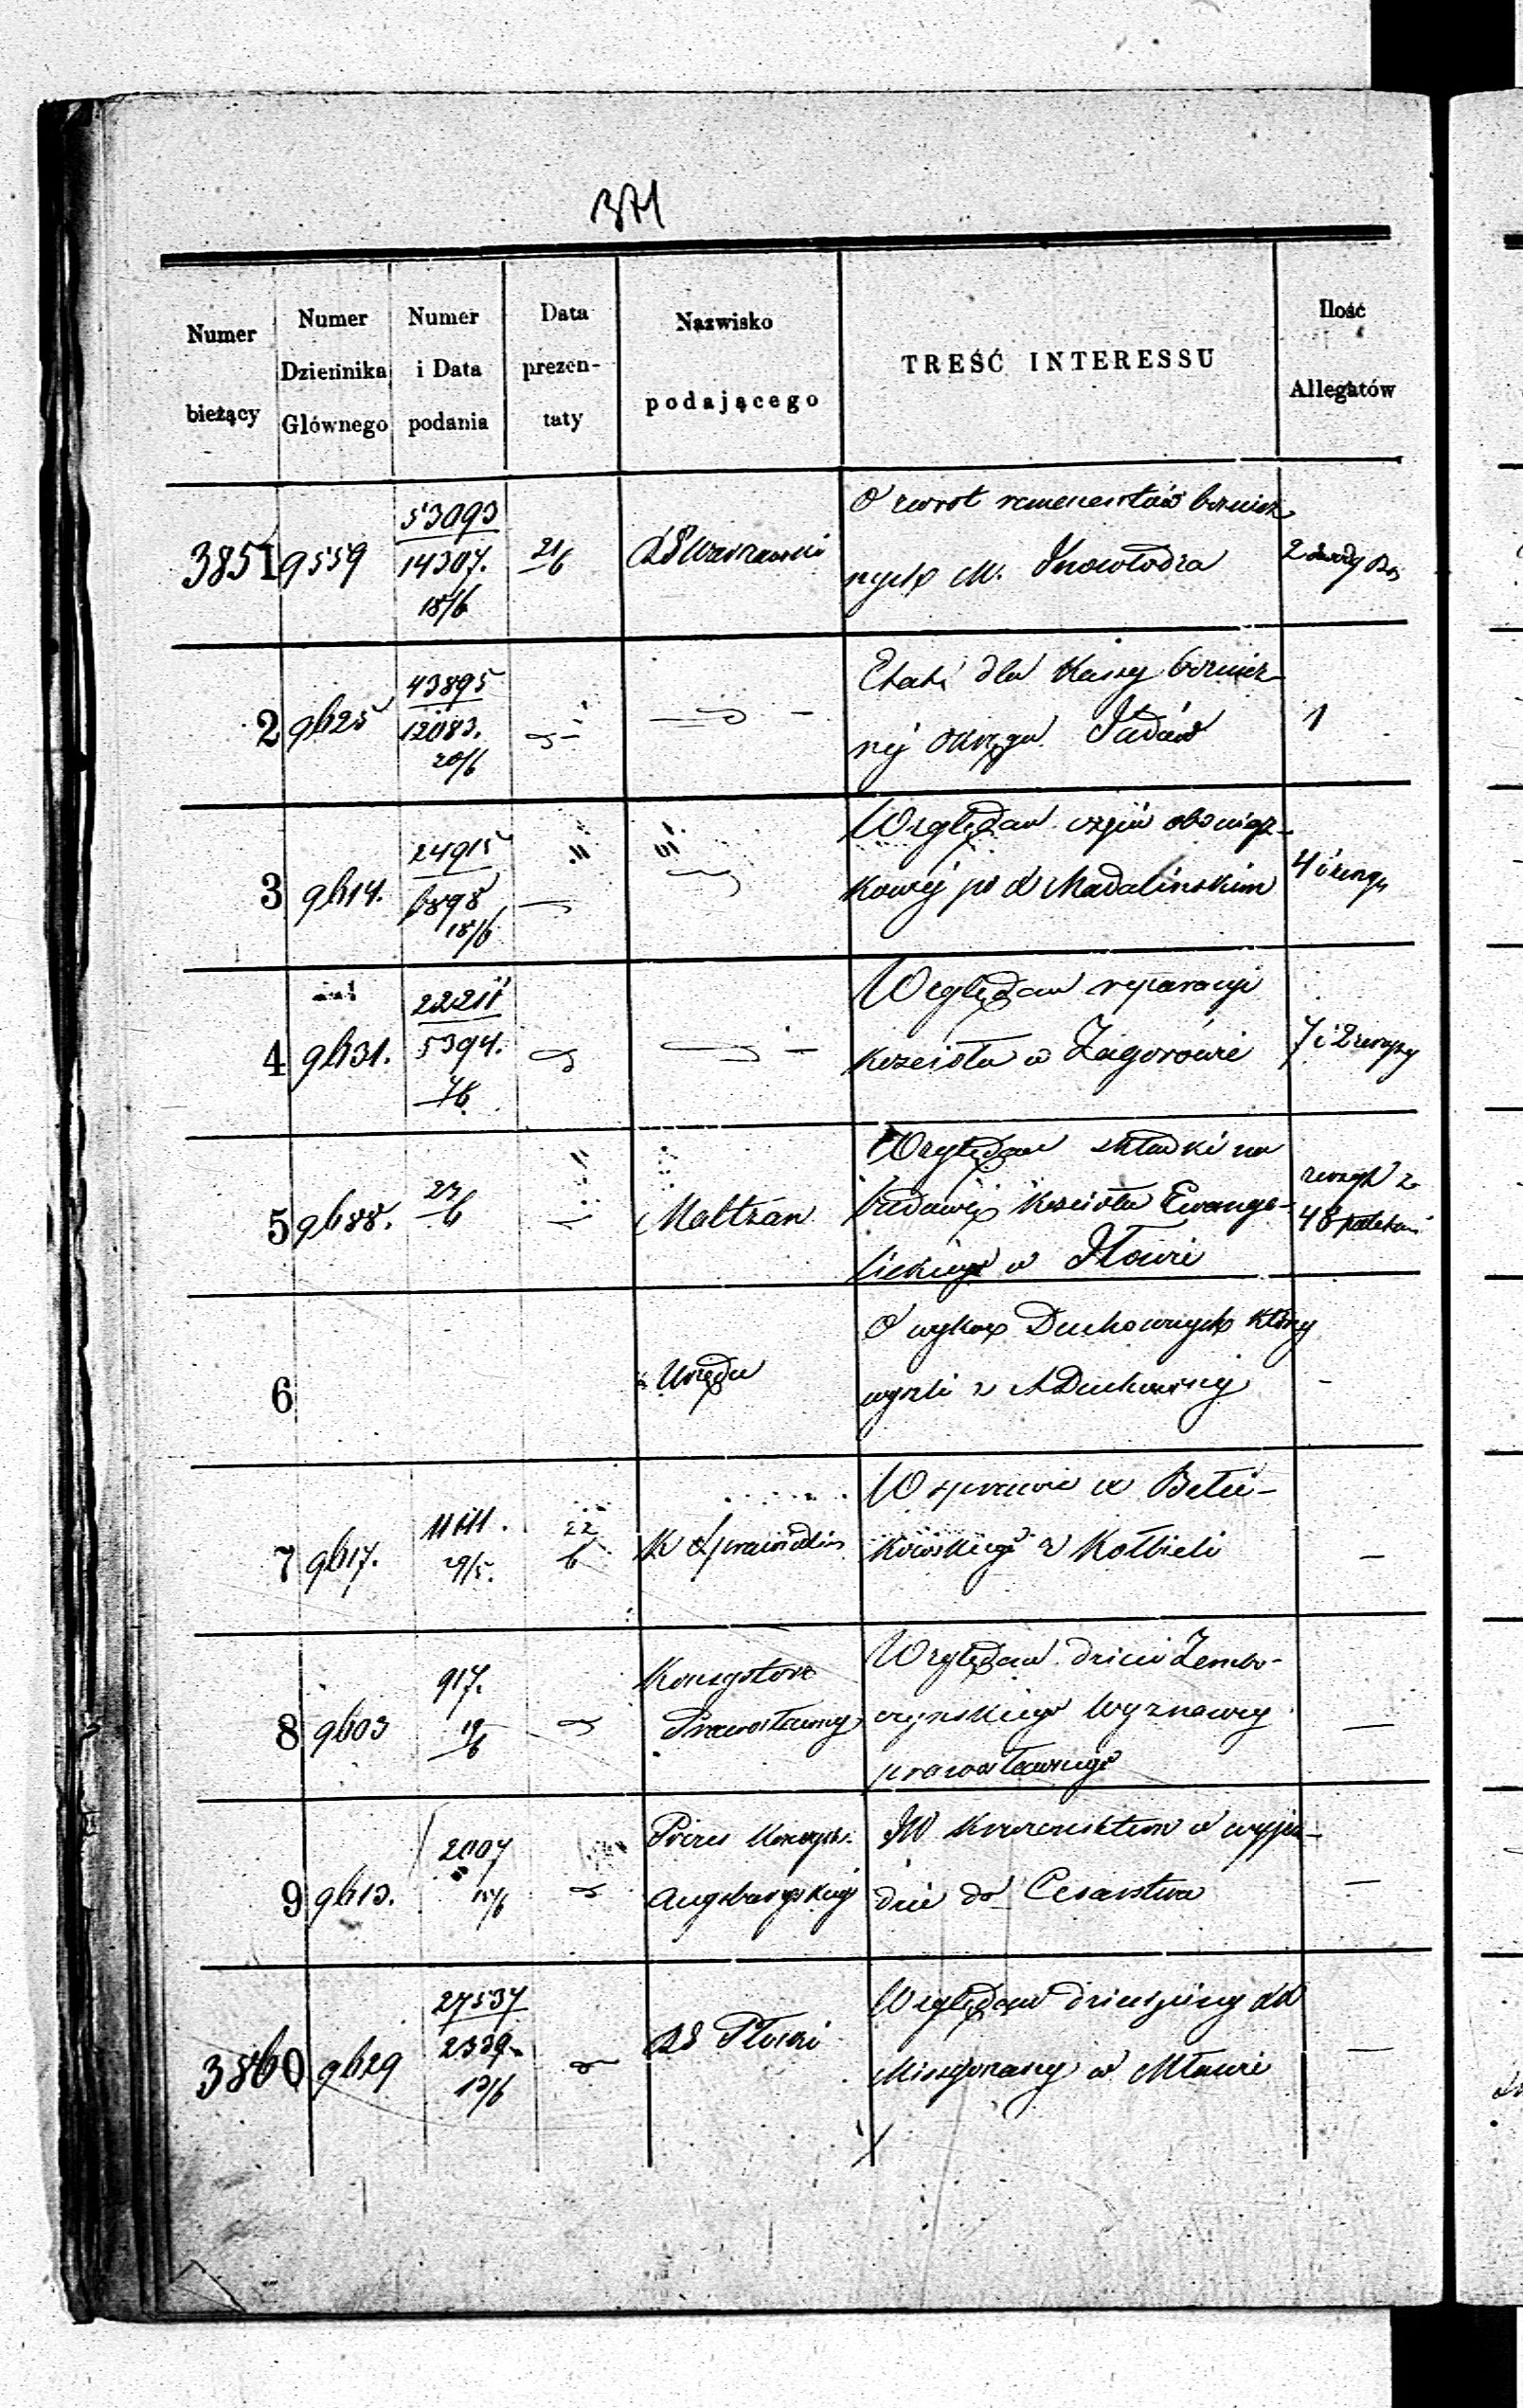 371
Numer bieżący
Numer Dziennika Głównego
Numer i Data podania
Data prezen- taty
Nazwisko podającego
TREŚĆ INTERESSU
Ilość Allegatów
3851 9559
53093
14307.
18/6
21/6
O zwrot remenentów bożnicz
nych M. Inowłodza
2
2 9625
43895
12083.
20/6
Etat dla Kassy bożnicz-
nej Okręgu Jadów
1
3 9614.
24915
6898
18/6
Względem
kowej po Madalińskim
4
4 9631.
22211
5394.
7/6
Względem reparacyi
kościoła w Zagorowie
7 i 2
5 9688.
22/6
Maltzan
Względem składki na
budowę kościoła Ewange-
lickiego w Iłowie
48
6
z Urzędu
O wykaz Duchownych którzy
wyszli z A Duchownej
-
7 9617.
11611.
29/5.
22/6
K Sprawiedliw
W sprawie
z Kołbieli
—
8 9603
917.
19/6
Konsystorz
Prawosławny
Względem dzieci Zembo-
czyńskiego Wyznawcy
prawosławnego
—
9 9613.
2007
15/6
Prezes Konsyst.
Augsburgskiego
w wyjeź-
dzie do Cesarstwa
—
3860 9629
27537
2339
13/6
Płocki
Względem dziesięciny XX
Missyonarzy w Mławie
—